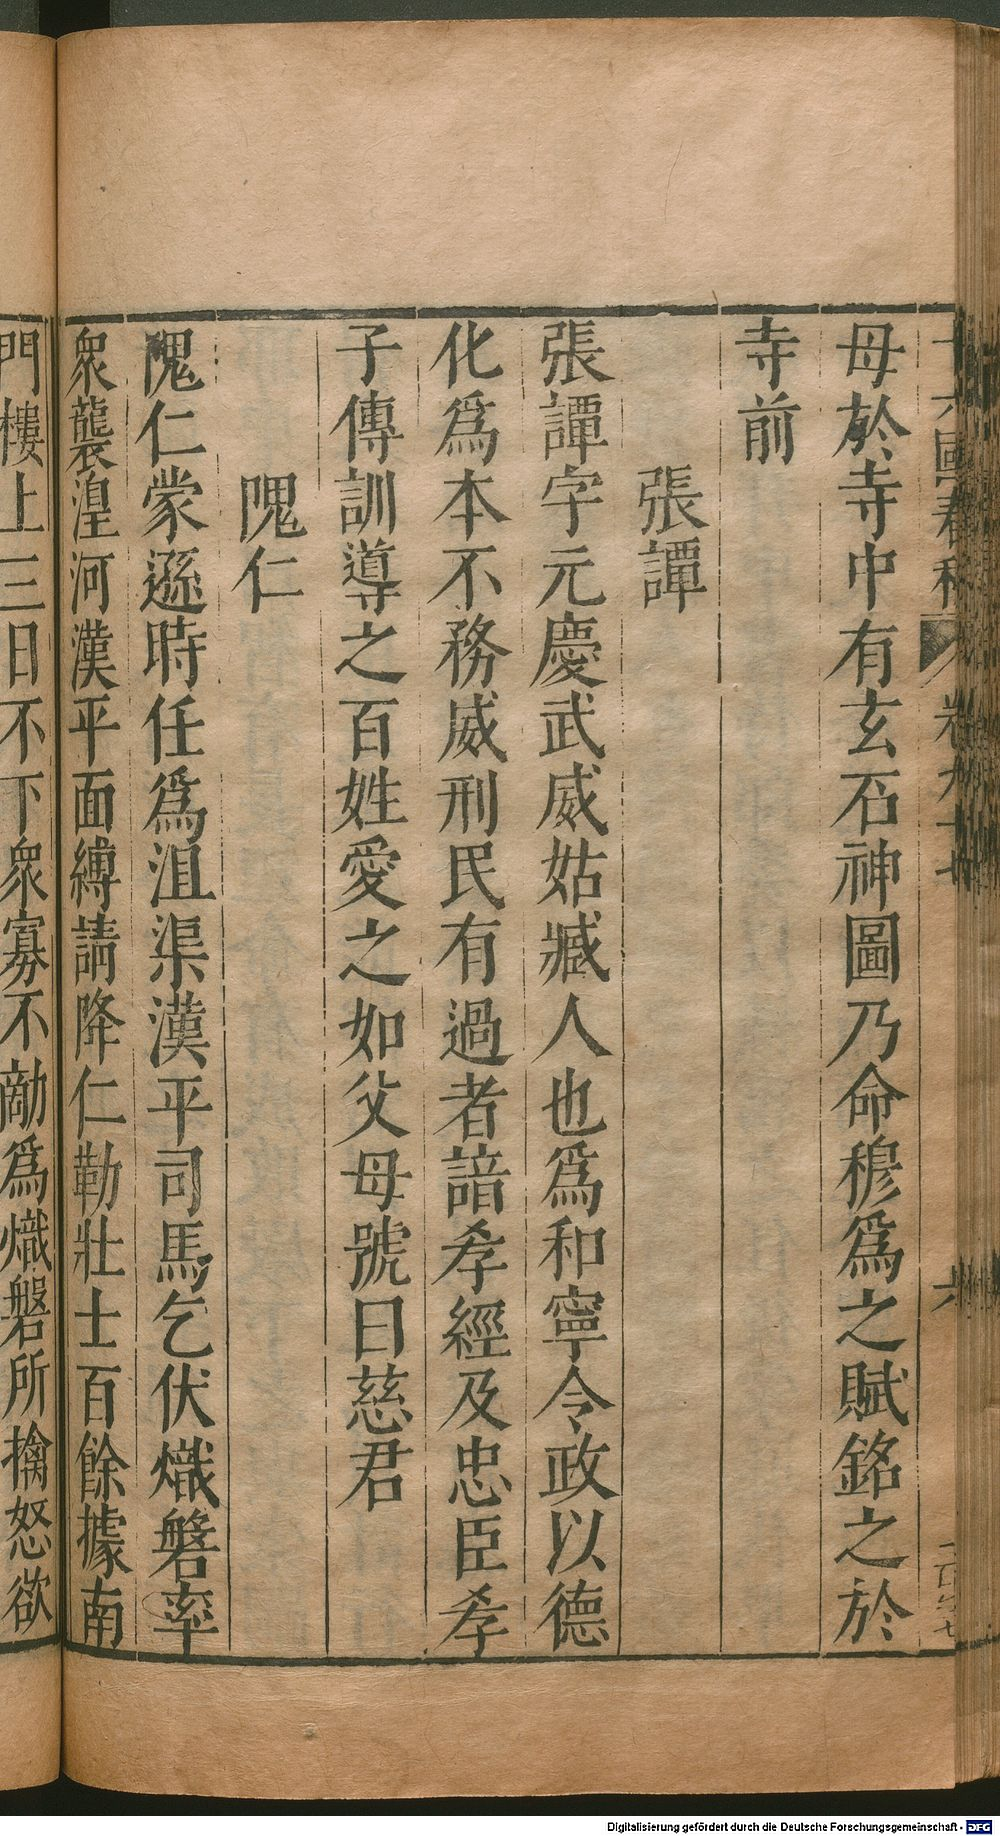 十六國春秋 卷九十七 六
母於寺中有玄石神圖乃命穆爲之賦銘之於
寺前
張譚
張譚字元慶武威姑臧人也爲和寧令政以德
化爲本不務威刑民有過者諳孝經及忠臣孝
子傳訓導之百姓愛之如父母號曰慈君
隗仁
隗仁蒙遜時任爲沮渠漢平司馬乞伏熾磐率
衆襲湟河漢平面縛請降仁勒壯士百餘據南
門樓上三日不下衆寡不敵爲熾磐所擒怒欲
Digitalisierung gefördert durch die Deutsche Forschungsgemeinschaft - DFG